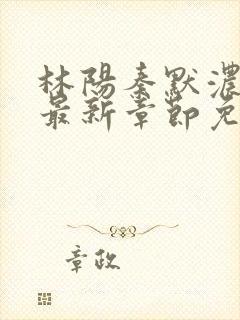 林陽秦默濃
最新章節免
章政